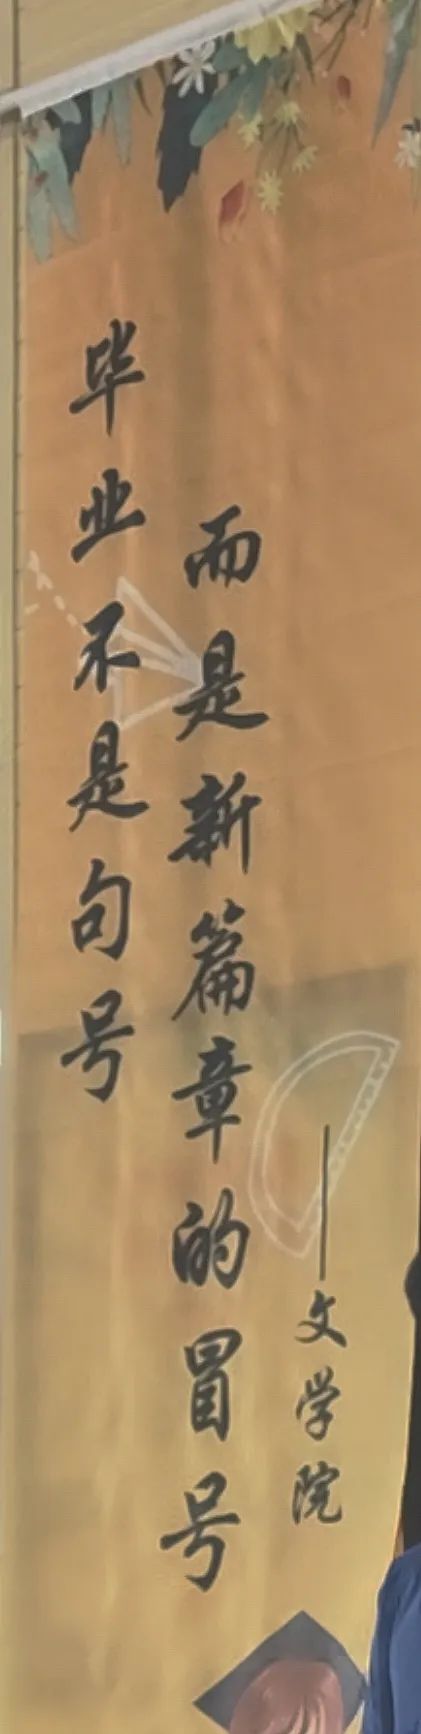 毕业不是句号
而是新篇章的冒号
——文学院